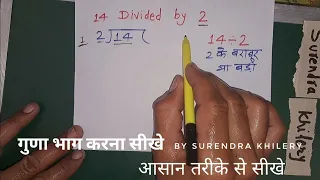 14 Divided by 2
1 2)14(
14÷2
2 के बराबर
या बड़ा
Surendra
Khilery
गुणा भाग करना सीखे BY SURENDRA KHILERY
आसान तरीके से सीखे